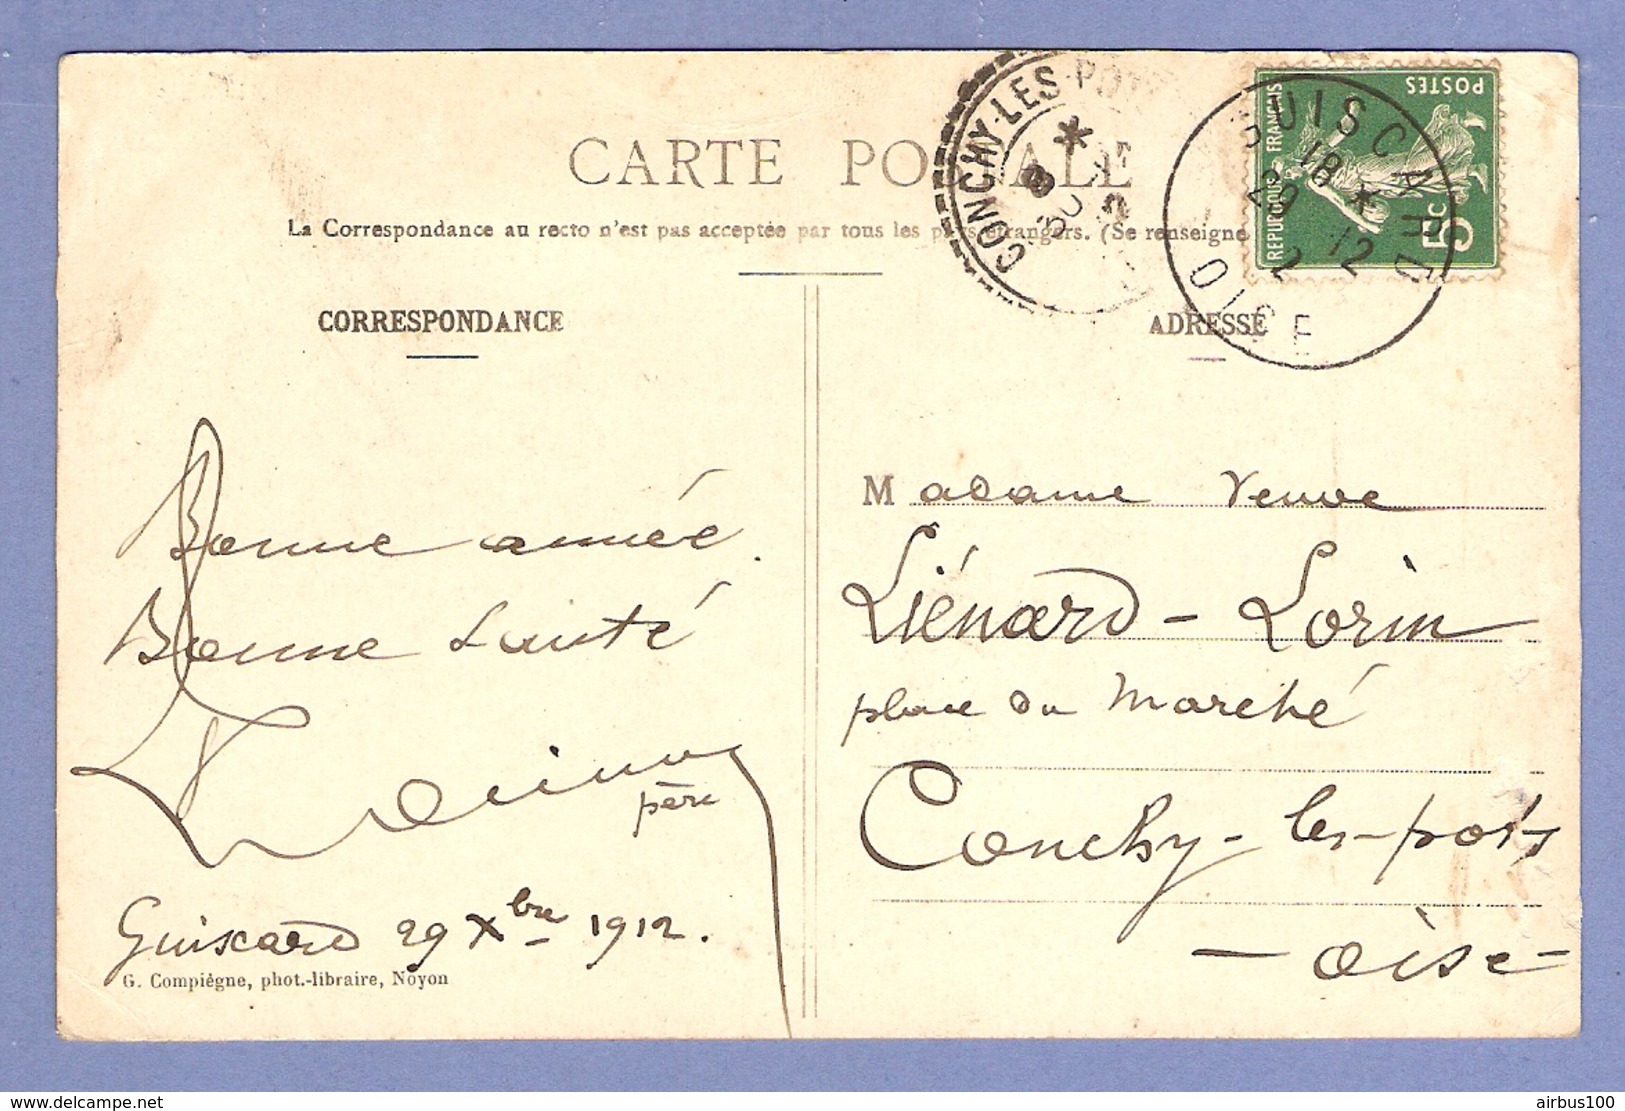 CARTE POSTALE
La Correspondance au recto n'est pas acceptée par tous les pays étrangers. (Se renseigne
CORRESPONDANCE
ADRESSE
CONCHY-LES-POTS
8 *
30
GUISCARD
18 *
29 12
12
OISE
POSTES
REPUBLIQUE FRANÇAISE
5c
Bonne année.
Bonne Santé
père
Guiscard 29 Xbre 1912.
G. Compiègne, phot.-libraire, Noyon
Madame Veuve
Liénard-Lorin
place du Marché
Conchy-les-pots
-Oise-
delcampe.net
airbus100